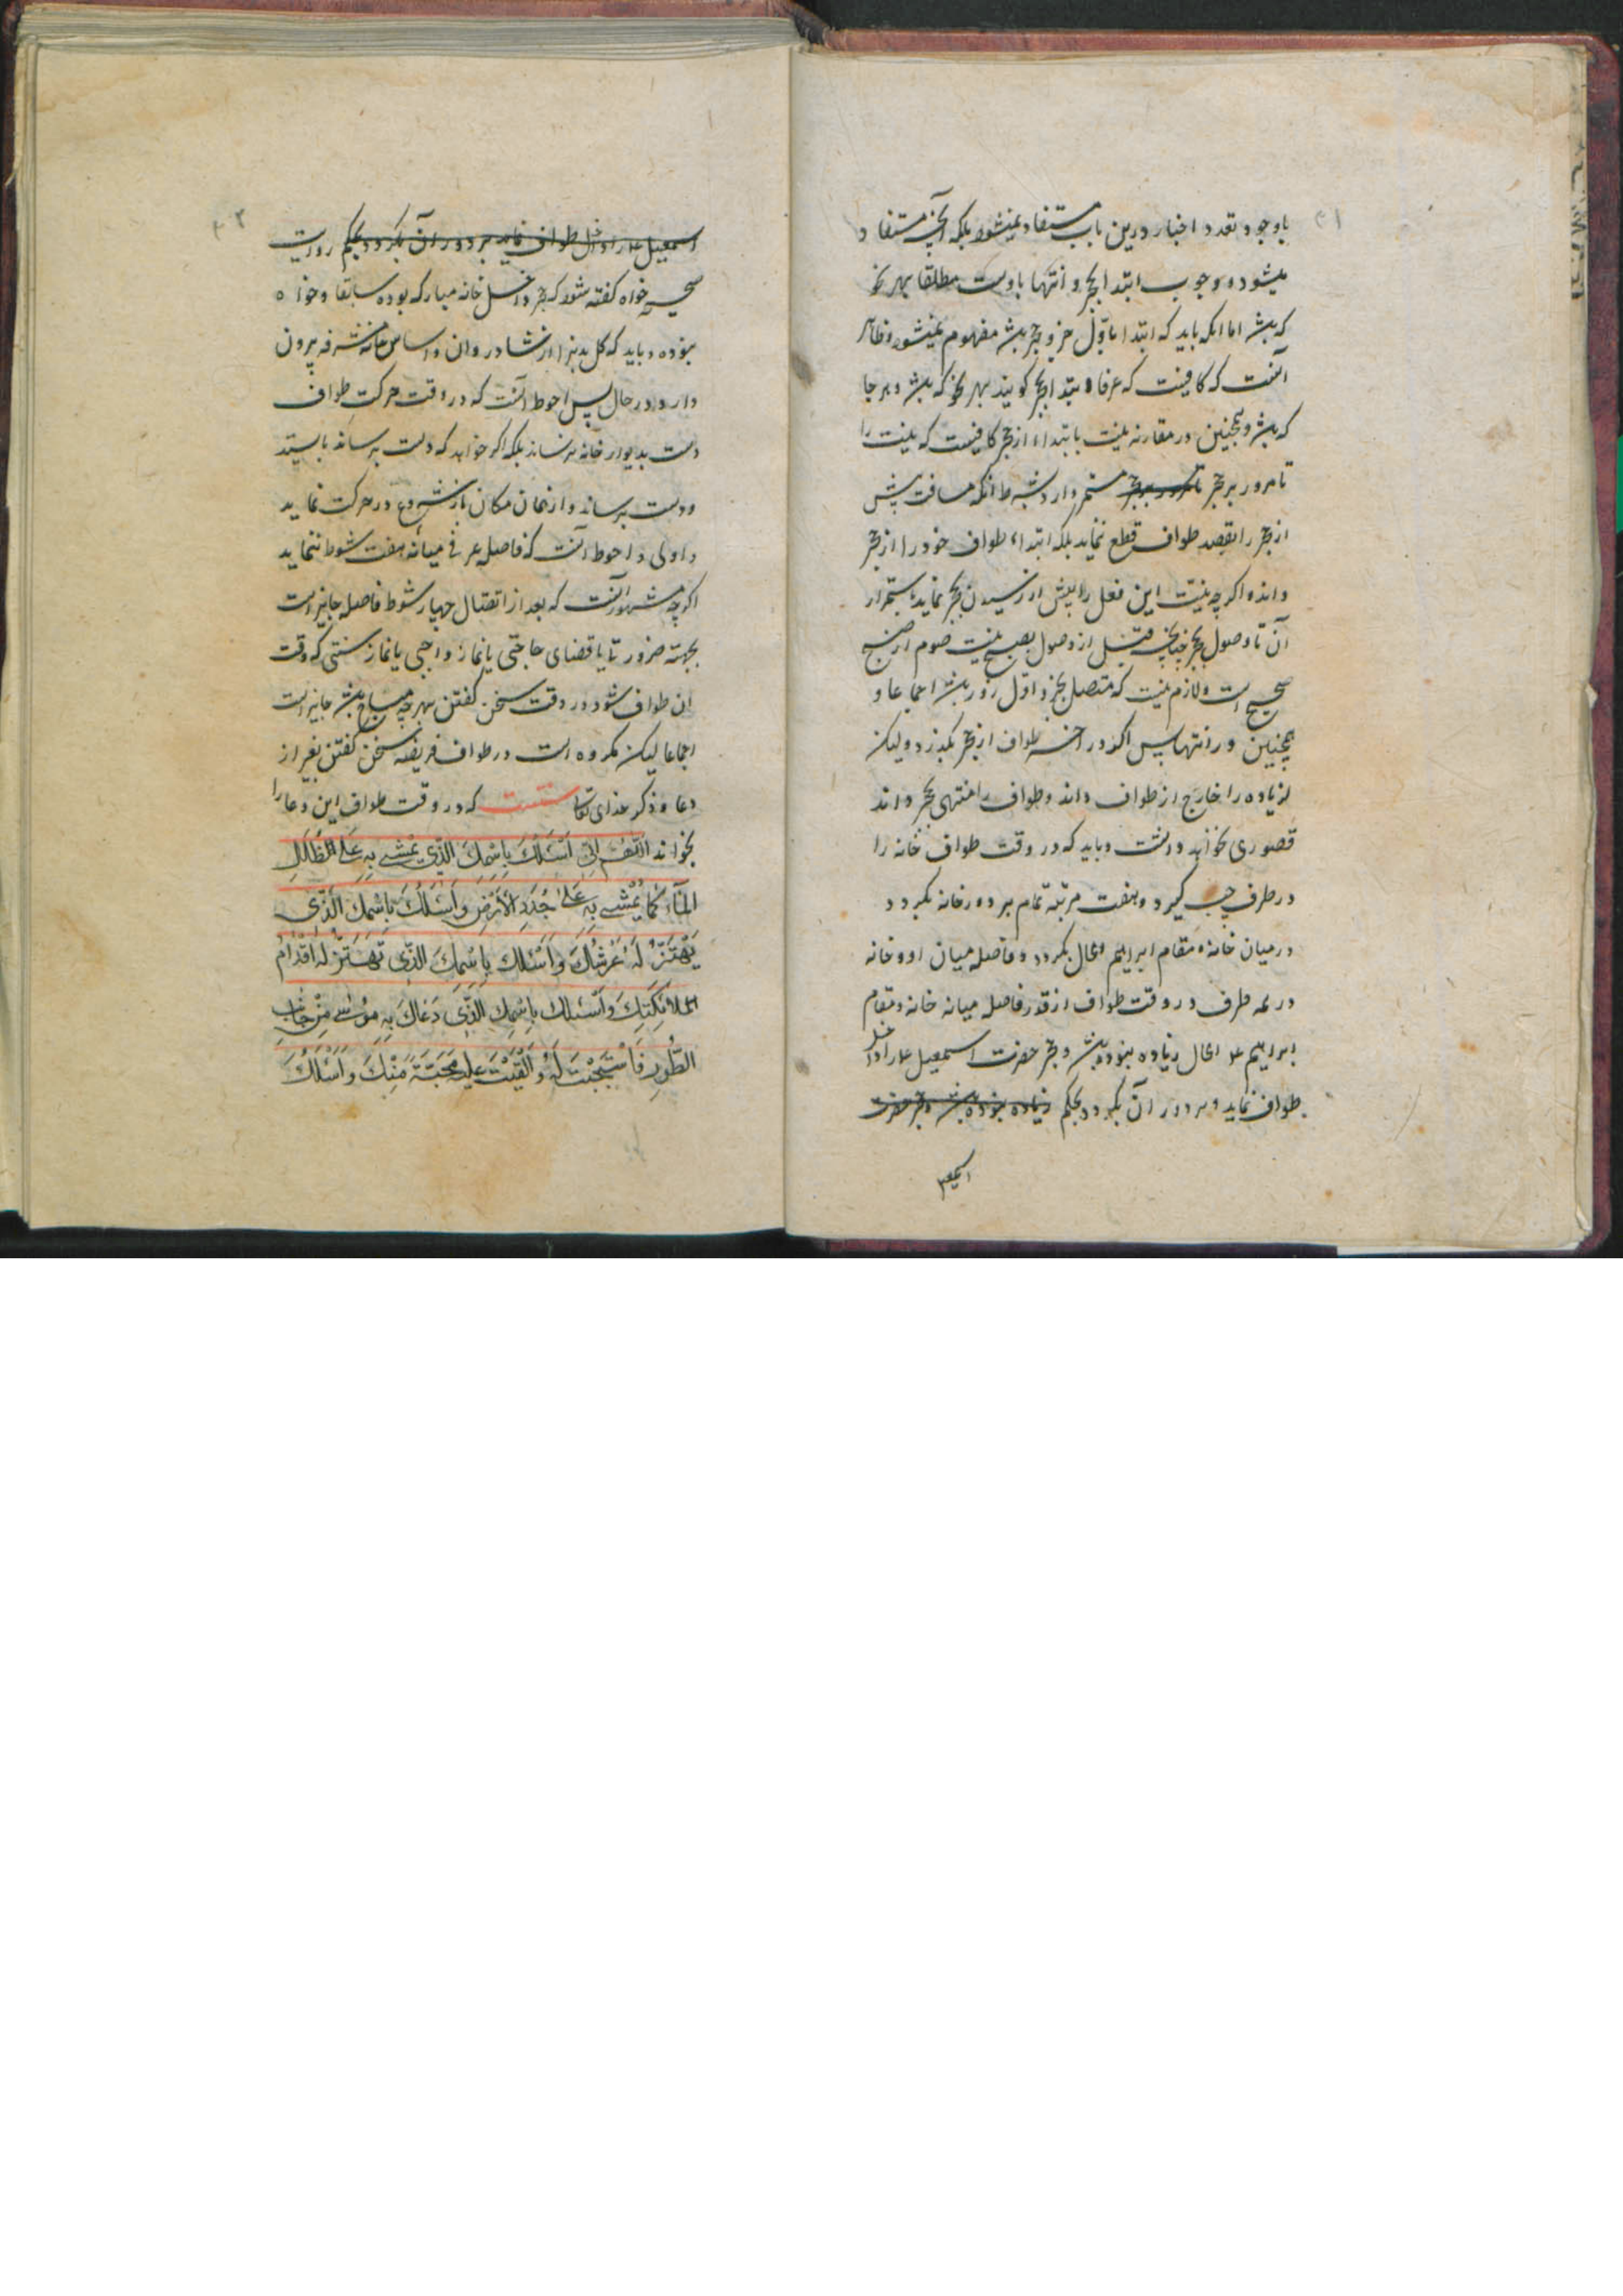 ۳۱
باوجود تعدد اخبار درین باب مستفاد نمیشود بلکه آنچه مستفاد
میشود وجوب ابتدا بحجر و انتها باوست مطلقا بهر نحو
که باشد اما اینکه باید که ابتدا باول جزو حجر باشد مفهوم نمیشود و ظاهر
آنست که کافیست که عرفا ابتدا بحجر کویند بهر نحو که باشد و هر جا
که باشد و همچنین در مقارنه نیت بابتداء از حجر کافیست که نیت را
تا مرور بر حجر تا مرور بر حجر مستمر دارد بشرط انکه مسافت پیش
از حجر را بقصد طواف قطع ننماید بلکه ابتداء طواف خود را از حجر
داند و اکرچه نیت این فعل را پیش از رسیدن بحجر نماید باستمرار
آن تا وصول بحجر چنانچه قبل از وصول بصبح نیت صوم از صبح
صحیح است و لازم نیست که متصل بجزو اول روز باشد اجماعا و
همچنین در انتها پس اکر در اخر طواف از حجر بکذرد و لیکن
زیاده را خارج از طواف داند و طواف را منتهی بحجر داند
قصوری نخواهد داشت و باید که در وقت طواف خانه را
در طرف چپ کیرد و هفت مرتبه تمام بر دور خانه بکردد
در میان خانه و مقام ابراهیم الحال بکردد و فاصله میان او و خانه
در همه طرف در وقت طواف از قدر فاصله میانه خانه و مقام
ابراهیم ع الحال زیاده نبوده باشد و حجر حضرت اسمعیل ع را داخل
طواف نماید و بر دور آن بکردد بحکم زیاده نبوده باشد و حجر حضرت
اسمعیل
۳۲
اسمعیل ع را داخل طواف نماید بر دور آن بکردد بحکم روایت
صحیحه خواه کفته شود که حجر داخل خانه مبارکه بوده سابقا و خواه
نبوده و باید که کل بدنرا از شادروان و اساس خانه مشرفه بیرون
دارد در حال پس احوط آنست که در وقت حرکت طواف
دست بدیوار خانه نرساند بلکه اکر خواهد که دست برساند بایستد
و دست برساند و از همان مکان باز شروع در حرکت نماید
و اولی و احوط آنست که فاصله عرفی میانه هفت شوط ننماید
اکرچه مشهور آنست که بعد از اتصال چهار شوط فاصله جایز است
بجهته ضرورتی یا قضای حاجتی یا نماز واجبی یا نماز سنتی که وقت
ان طواف شود در وقت سخن کفتن بهر چه مباح باشد جایز است
اجماعا لیکن مکروه است در طواف فریضه سخن کفتن بغیر از
دعا و ذکر خدای تعالی سنتست که در وقت طواف این دعا را
بخواند اللّهم انی اَسْئَلُکَ بِاسْمِكَ الَّذِي يُمْشىٰ بِهِ عَلى طُلَلِ
الْمَاءِ كَمَا يُمْشىٰ بِهِ عَلىٰ جُدَدِ الْأَرْضِ وَأَسْئَلُكَ بِاسْمِكَ الَّذِي
يَهْتَزُّ لَهُ عَرْشُكَ وَأَسْئَلُكَ بِاسْمِكَ الَّذِي تَهْتَزُّ لَهُ أَقْدَامُ
الْمَلَائِكَتِكَ وَأَسْئَلُكَ بِاسْمِكَ الَّذِي دَعَاكَ بِهِ مُوسىٰ مِنْ جَانِبِ
الطُّورِ فَاسْتَجَبْتَ لَهُ وَأَلْقَيْتَ عَلَيْهِ مَحَبَّةً مِنْكَ وَأَسْئَلُكَ